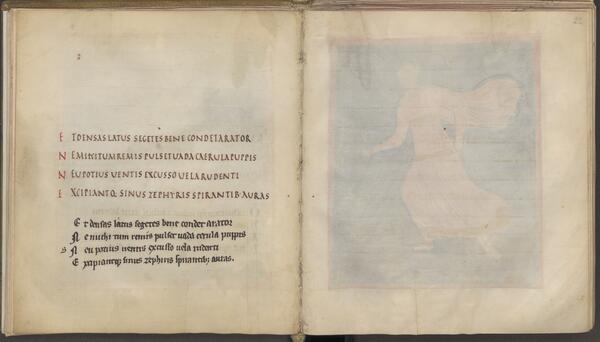 ET DENSAS LATUS SEGETES BENE CONDET ARATOR
NE MIHI TUM REMIS PULSET UADA CAERULA PUPPIS
NEU POTIUS UENTIS EXCUSSO UELA RUDENTI
EXCIPIANTQ; SINUS ZEPHYRIS SPIRANTIB· AURAS
Et densas latus segetes bene condet arator
Ne michi tum remis pulset uada cerula puppis
Neu potius uentis excusso uela rudenti
Excipiantq; sinus zephiris spirantib; auras.
22